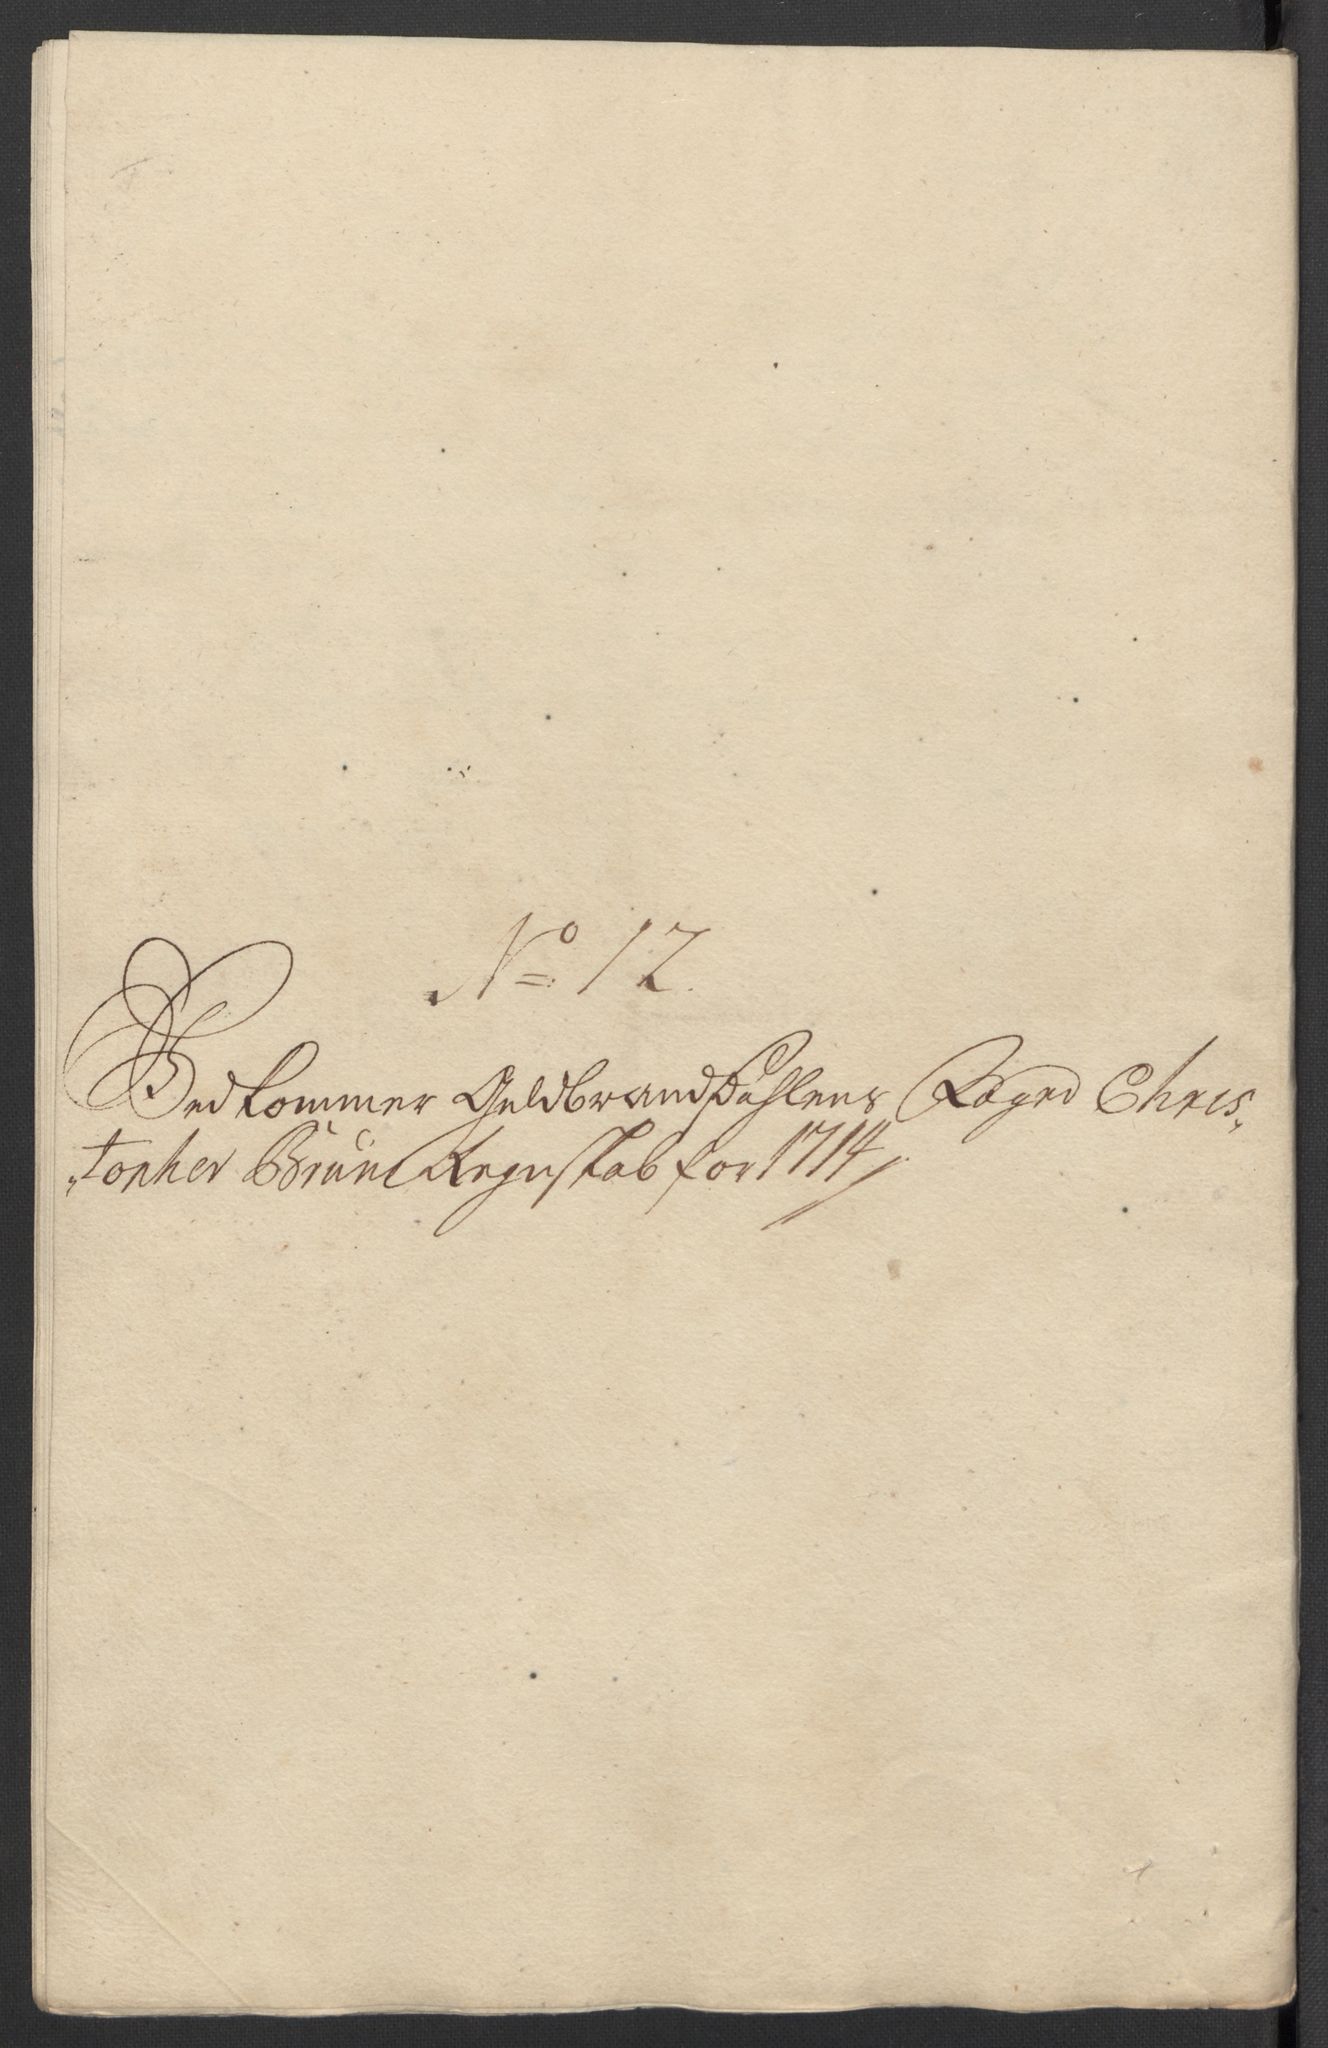 No 12.
Vedkommer Guldbrandsdahlens Foged Chris„
„topher Brüns Regnskab for 1714